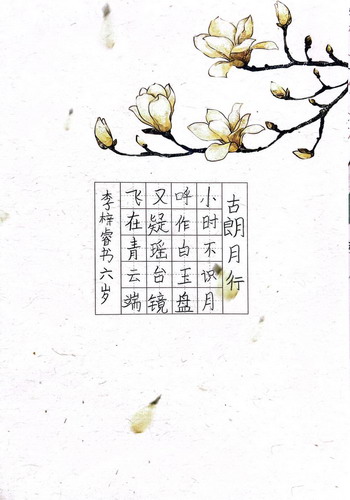 古朗月行
小时不识月
呼作白玉盘
又疑瑶台镜
飞在青云端
李梓睿书六岁